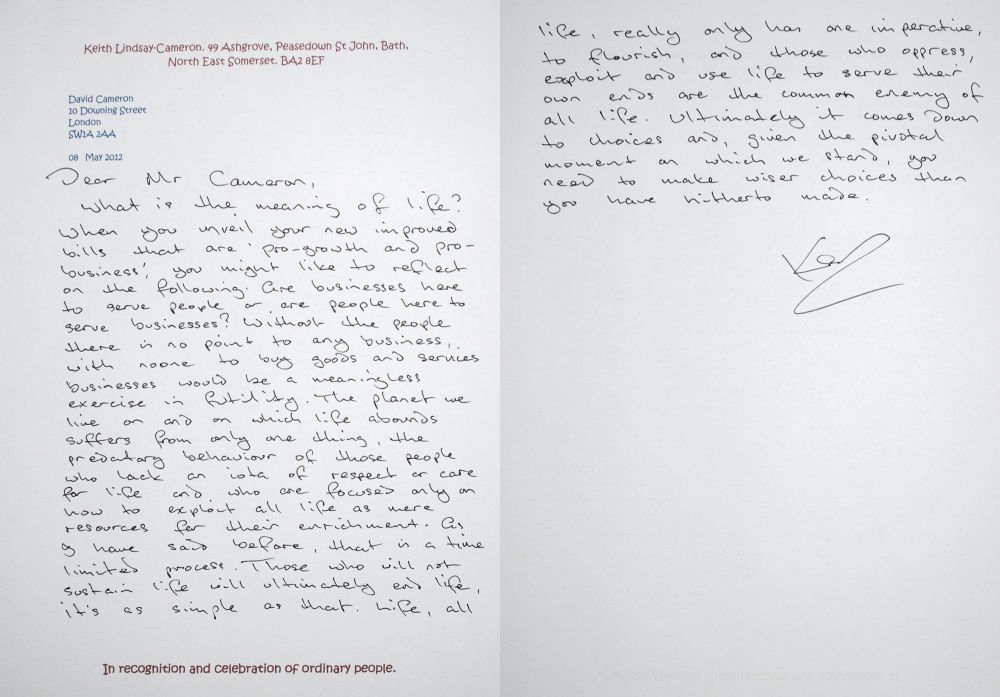 Keith Lindsay-Cameron. 49 Ashgrove, Peasedown St John, Bath,
North East Somerset. BA2 8EF
David Cameron
10 Downing Street
London
SW1A 2AA
08 May 2012
Dear Mr Cameron,
What is the meaning of life?
When you unveil your new improved
bills that are 'pro-growth and pro-
business', you might like to reflect
on the following. Are businesses here
to serve people or are people here to
serve businesses? Without the people
there is no point to any business,
with noone to buy goods and services
businesses would be a meaningless
exercise in futility. The planet we
live on and on which life abounds
suffers from only one thing, the
predatory behaviour of those people
who lack an iota of respect or care
for life and who are focused only on
how to exploit all life as mere
resources for their enrichment. As
I have said before, that is a time
limited process. Those who will not
sustain life will ultimately end life,
it's as simple as that. Life, all
In recognition and celebration of ordinary people.
life, really only has one imperative,
to flourish, and those who oppress,
exploit and use life to serve their
own ends are the common enemy of
all life. Ultimately it comes down
to choices and, given the pivotal
moment on which we stand, you
need to make wiser choices than
you have hitherto made.